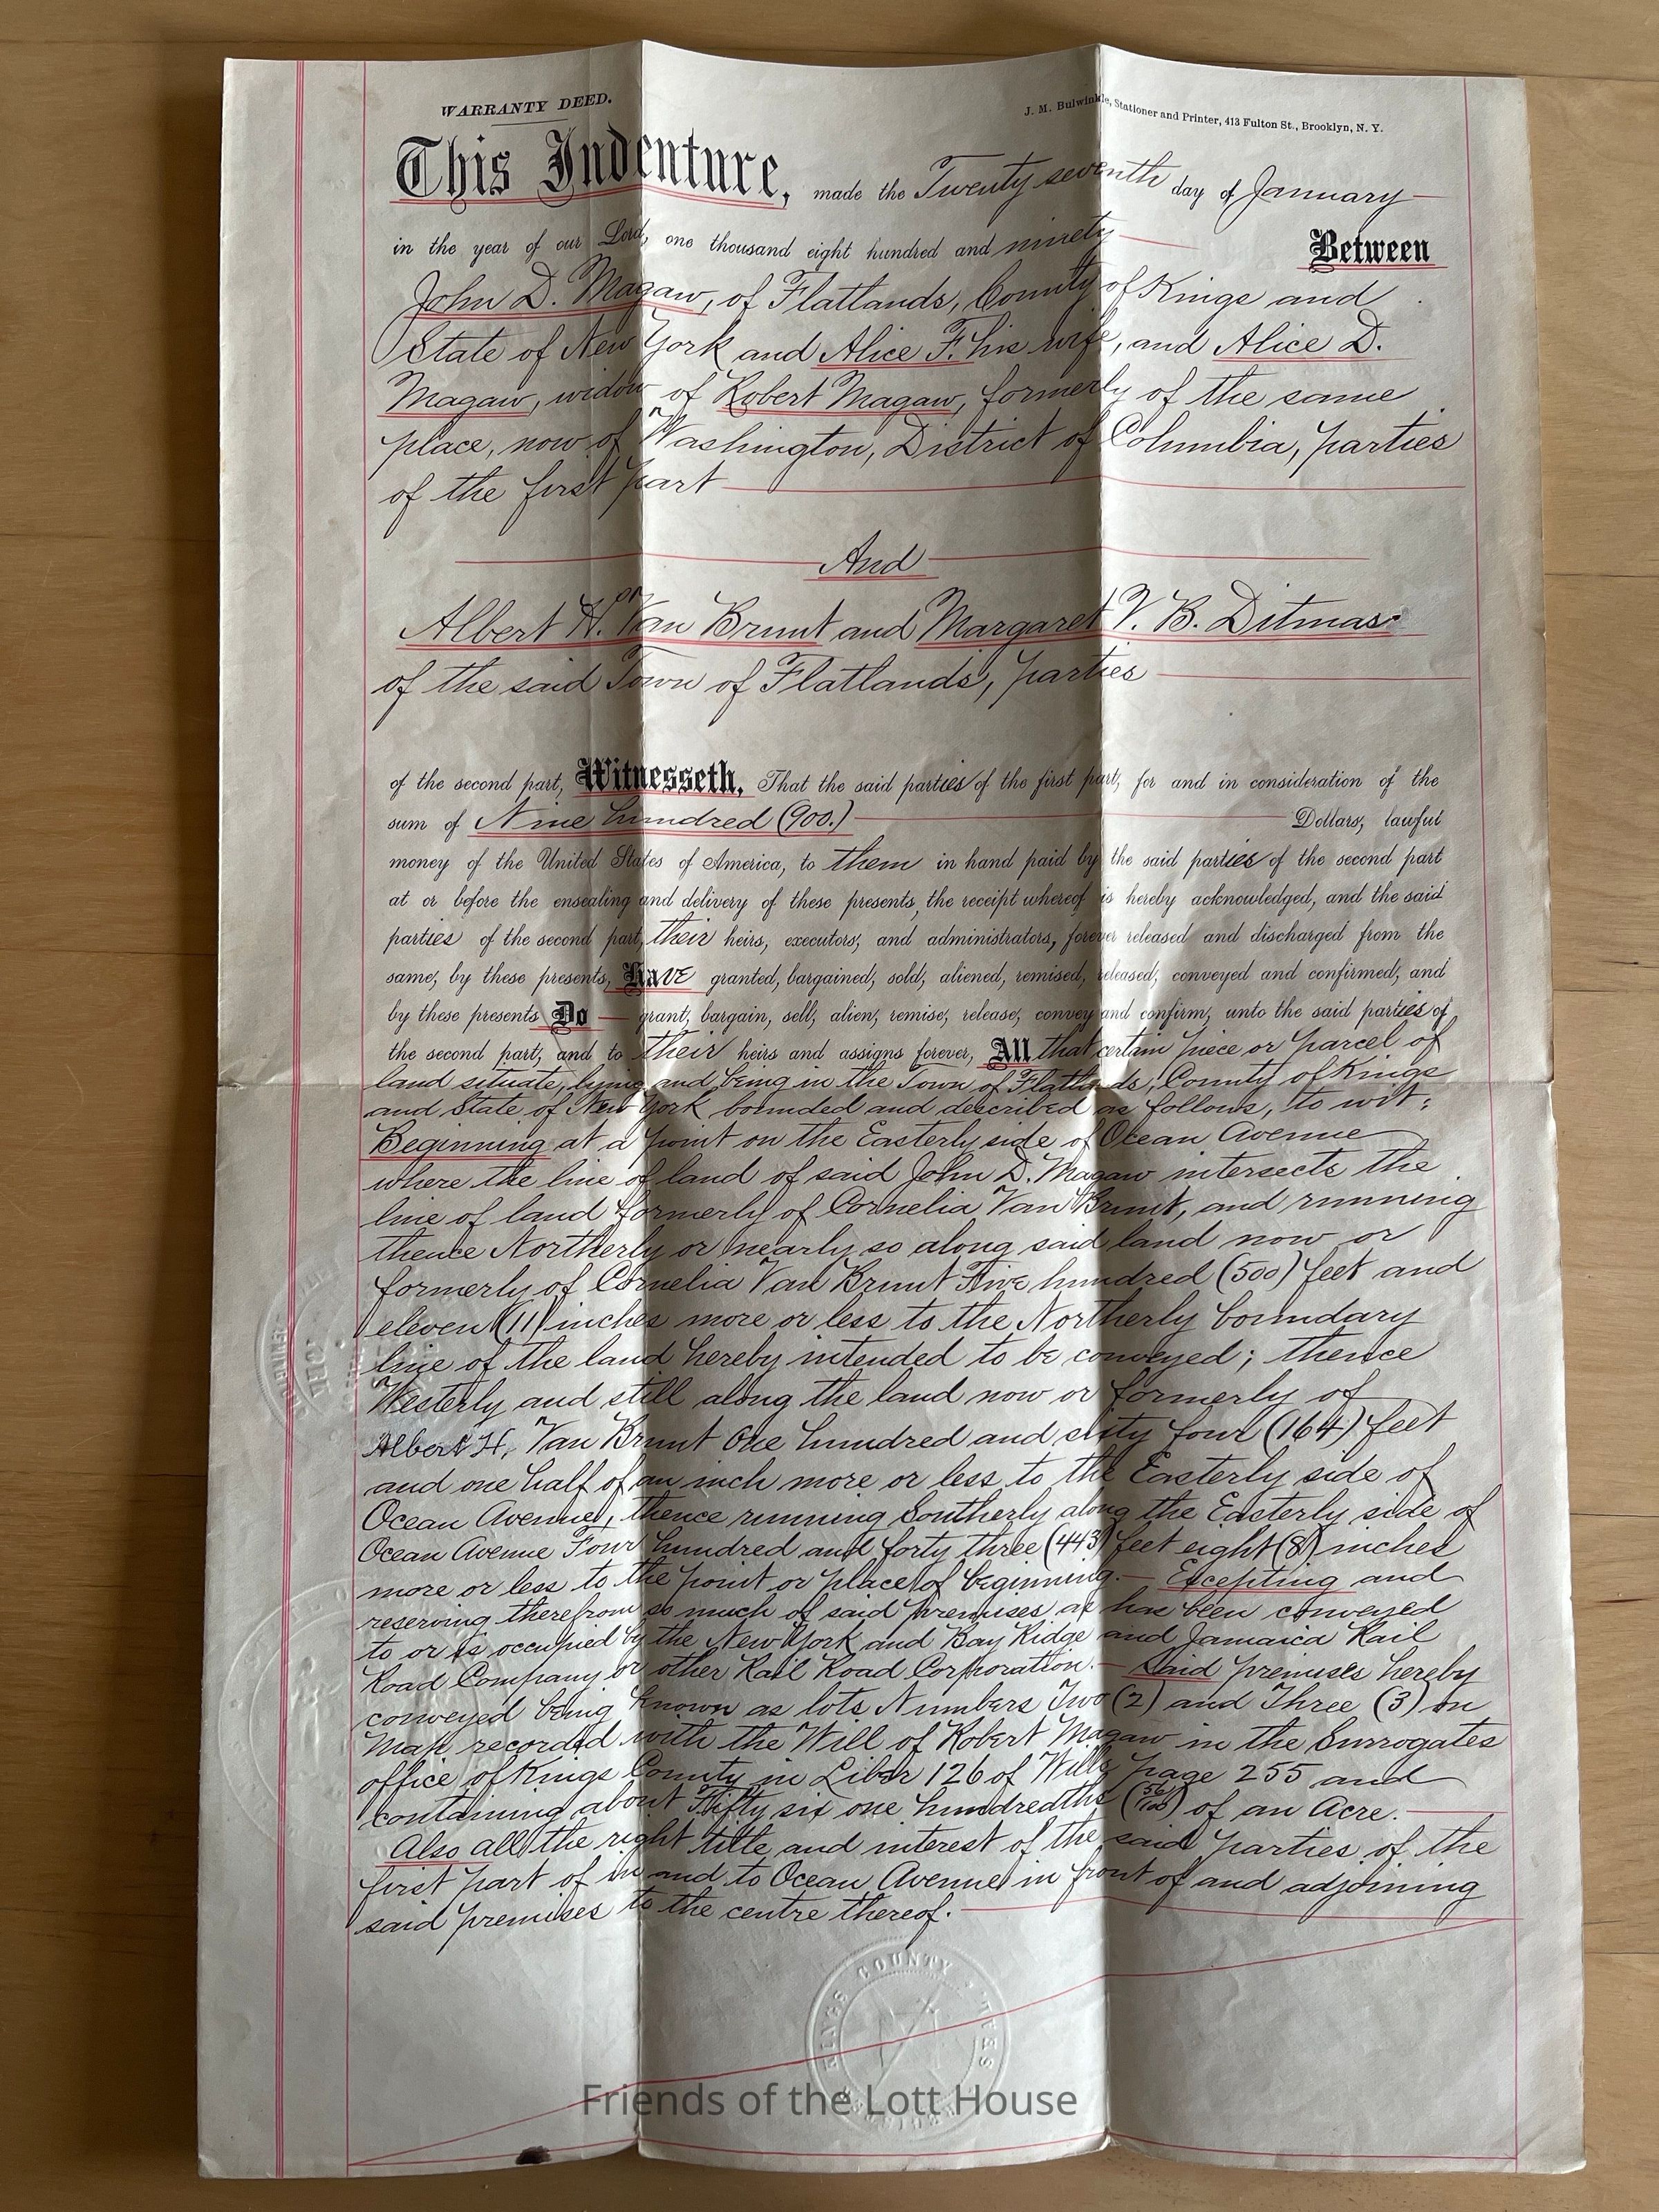 WARRANTY DEED.
J. M. Bulwinkle, Stationer and Printer, 413 Fulton St., Brooklyn, N. Y.
This Indenture, made the Twenty seventh day of January
in the year of our Lord, one thousand eight hundred and ninety Between
John D. Magaw, of Flatlands, County of Kings and
State of New York and Alice F. his wife, and Alice D.
Magaw, widow of Robert Magaw, formerly of the same
place, now of Washington, District of Columbia, parties
of the first part
And
Albert H. Van Brunt and Margaret V. B. Ditmas
of the said Town of Flatlands, parties
of the second part, Witnesseth, That the said parties of the first part, for and in consideration of the
sum of Nine hundred (900.) Dollars, lawful
money of the United States of America, to them in hand paid by the said parties of the second part
at or before the ensealing and delivery of these presents, the receipt whereof is hereby acknowledged, and the said
parties of the second part, their heirs, executors, and administrators, forever released and discharged from the
same, by these presents, Have granted, bargained, sold, aliened, remised, released, conveyed and confirmed, and
by these presents Do grant, bargain, sell, alien, remise, release, convey and confirm, unto the said parties of
the second part, and to their heirs and assigns forever, All that certain piece or parcel of
land situate, lying and being in the Town of Flatlands, County of Kings
and State of New York bounded and described as follows, to wit:
Beginning at a point on the Easterly side of Ocean Avenue
where the line of land of said John D. Magaw intersects the
line of land formerly of Cornelia Van Brunt, and running
thence Northerly or nearly so along said land now or
formerly of Cornelia Van Brunt Five hundred (500) feet and
eleven (11) inches more or less to the Northerly boundary
line of the land hereby intended to be conveyed; thence
Westerly and still along the land now or formerly of
Albert H. Van Brunt One hundred and sixty four (164) feet
and one half of an inch more or less to the Easterly side of
Ocean Avenue, thence running Southerly along the Easterly side of
Ocean Avenue Four hundred and forty three (443) feet eight (8) inches
more or less to the point or place of beginning.— Excepting and
reserving therefrom so much of said premises as has been conveyed
to or is occupied by the New York and Bay Ridge and Jamaica Rail
Road Company or other Rail Road Corporation.— Said premises hereby
conveyed being known as lots Numbers Two (2) and Three (3) on
Map recorded with the Will of Robert Magaw in the Surrogates
office of Kings County in Liber 126 of Wills page 255 and
containing about Fifty six one hundredths (56/100) of an Acre.
Also all the right title and interest of the said parties of the
first part of in and to Ocean Avenue in front of and adjoining
said premises to the centre thereof.
COUNTY
Friends of the Lott House